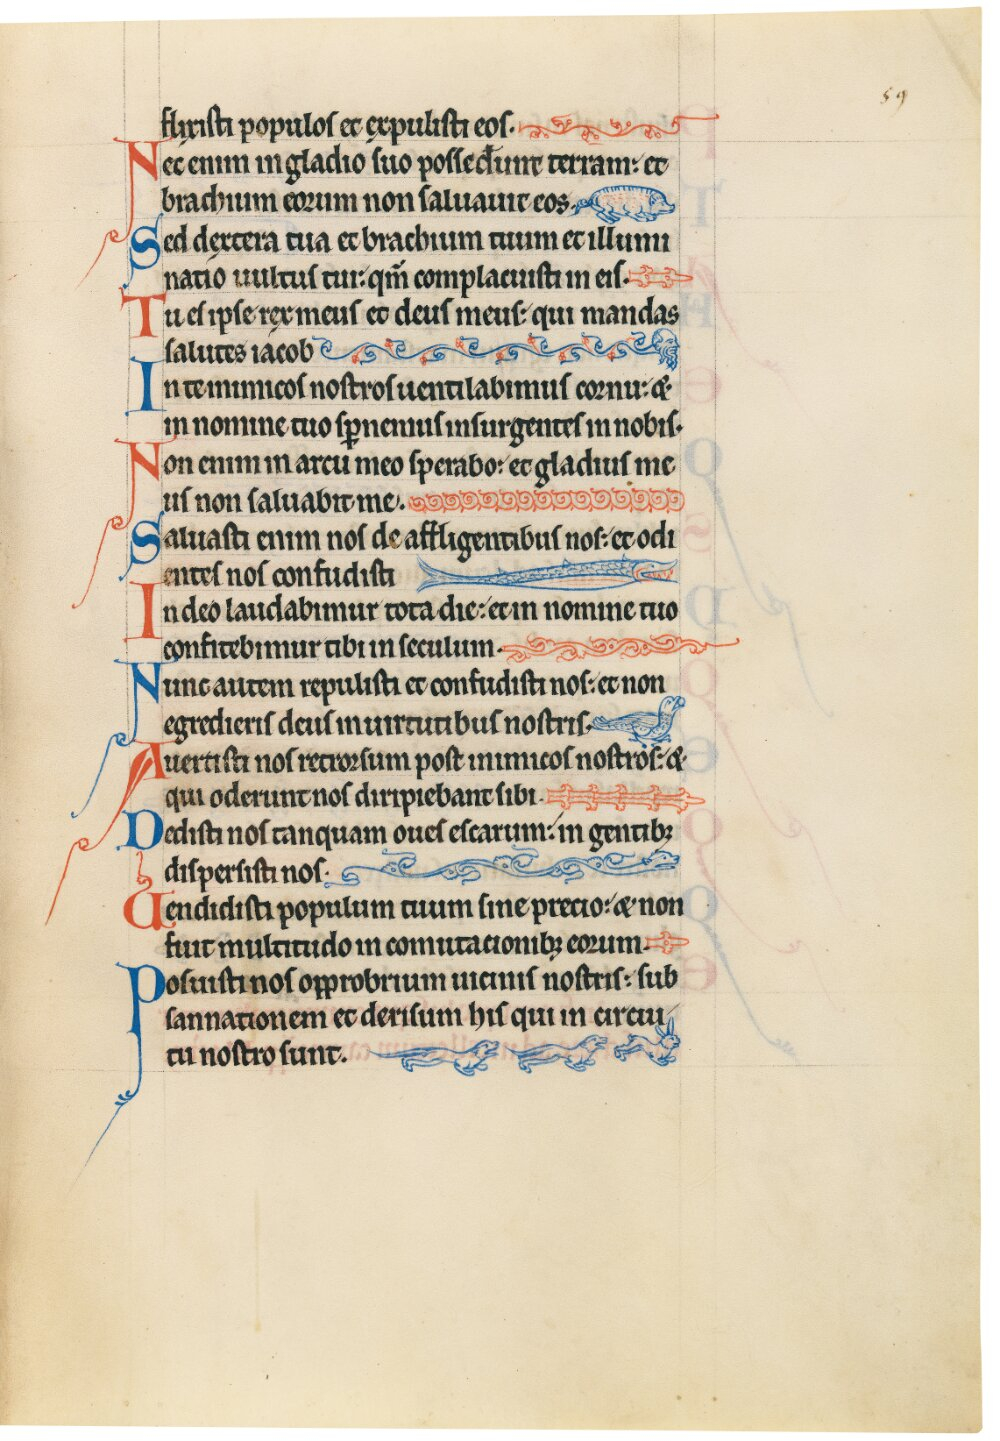 59
flixisti populos et expulisti eos.
Nec enim in gladio suo possederunt terram: et
brachium eorum non saluauit eos.
Sed dextera tua et brachium tuum et illumi
natio uultus tui: qm̄ complacuisti in eis.
Tu es ipse rex meus et deus meus: qui mandas
salutes iacob
In te inimicos nostros uentilabimus cornu: &
in nomine tuo sp̄nemus insurgentes in nobis.
Non enim in arcu meo sperabo: et gladius me
us non saluabit me.
Saluasti enim nos de affligentibus nos: et odi
entes nos confudisti
In deo laudabimur tota die: et in nomine tuo
confitebimur tibi in seculum.
Nunc autem repulisti et confudisti nos: et non
egredieris deus in uirtutibus nostris.
Auertisti nos retrorsum post inimicos nostros: &
qui oderunt nos diripiebant sibi.
Dedisti nos tanquam oues escarum: in gentibꝫ
dispersisti nos.
Uendidisti populum tuum sine precio: & non
fuit multitudo in comutacionibꝫ eorum.
Posuisti nos opprobrium uicinis nostris: sub
sannationem et derisum his qui in circui
tu nostro sunt.